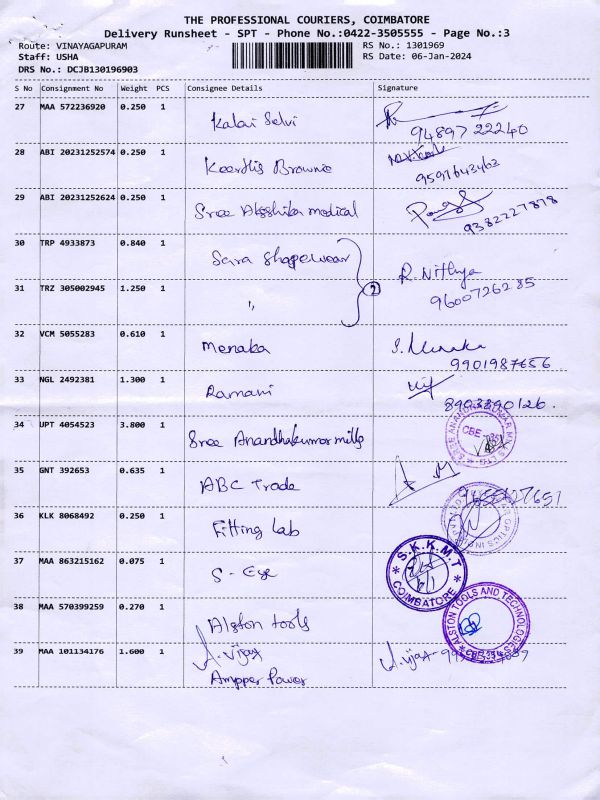 THE PROFESSIONAL COURIERS, COIMBATORE
Delivery Runsheet - SPT - Phone No.:0422-3505555 - Page No.:3
Route: VINAYAGAPURAM RS No.: 1301969
Staff: USHA RS Date: 06-Jan-2024
DRS No.: DCJB130196903
S No Consignment No Weight PCS Consignee Details Signature
27 MAA 572236920 0.250 1 Kalai Selvi
94897 22240
28 ABI 20231252574 0.250 1 Keerthis Brownie
9597643463
29 ABI 20231252624 0.250 1 Sree Medical
9382227878
30 TRP 4933873 0.840 1 Sara Shapewear
R. Nithya
31 TRZ 305002945 1.250 1 " 2
9600726285
32 VCM 5055283 0.610 1 Menaka S. Menaka
9901987656
33 NGL 2492381 1.300 1 Ramani
8903890126.
34 UPT 4054523 3.800 1 Sree Anandhakumar mills
CBE
35 GNT 392653 0.635 1 ABC Trade
36 KLK 8068492 0.250 1 Fitting Lab
37 MAA 863215162 0.075 1 S - Eye
S.K.K.M.T
COIMBATORE
38 MAA 570399259 0.270 1 Alston tools
ALSTON TOOLS AND TECHNOLOGIES
39 MAA 101134176 1.600 1 A. Vijay A. Vijay
Ampper Power